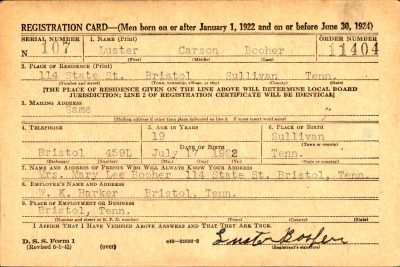 REGISTRATION CARD—(Men born on or after January 1, 1922 and on or before June 30, 1924)
SERIAL NUMBER 1. NAME (Print) ORDER NUMBER
N 107 Luster Carson Booher 11404
(First) (Middle) (Last)
2. PLACE OF RESIDENCE (Print)
114 State St. Bristol Sullivan Tenn.
(Number and street) (Town, township, village, or city) (County) (State)
[THE PLACE OF RESIDENCE GIVEN ON THE LINE ABOVE WILL DETERMINE LOCAL BOARD
JURISDICTION; LINE 2 OF REGISTRATION CERTIFICATE WILL BE IDENTICAL]
3. MAILING ADDRESS
Same
[Mailing address if other than place indicated on line 2. If same insert word same]
4. TELEPHONE 5. AGE IN YEARS 6. PLACE OF BIRTH
19 Sullivan
DATE OF BIRTH (Town or county)
Bristol 459L July 17 1922 Tenn.
(Exchange) (Number) (Mo.) (Day) (Yr.) (State or country)
7. NAME AND ADDRESS OF PERSON WHO WILL ALWAYS KNOW YOUR ADDRESS
Mrs. Mary Lee Booher 114 State St. Bristol, Tenn.
8. EMPLOYER'S NAME AND ADDRESS
W. K. Barker Bristol, Tenn.
9. PLACE OF EMPLOYMENT OR BUSINESS
Bristol, Tenn.
(Number and street or R. F. D. number) (Town) (County) (State)
I AFFIRM THAT I HAVE VERIFIED ABOVE ANSWERS AND THAT THEY ARE TRUE.
D. S. S. Form 1
(Revised 6-1-42) (over) Luster Booher
(Registrant's signature)